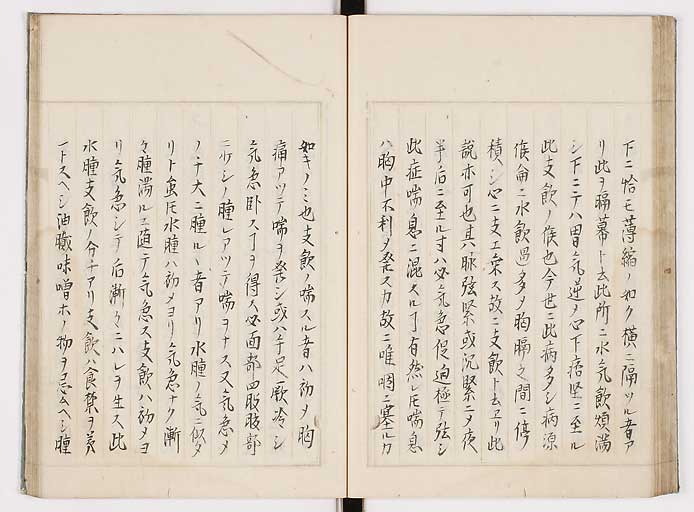 下ニ恰モ薄縮ノ如ク横ニ隔ツル者ア
リ此ヲ膈幕ト云此所ニ水氣飲煩満
シ下ニテハ胃氣逆ノ心下痞堅ニ至ル
此支飲ノ候也今世ニ此病多シ病源
候論ニ水飲過多メ胸膈之間ニ停
積シ心ニ支エ乗ス故ニ支飲ト云ヱリ此
説亦可也其ハ脉弦緊或沉緊ニメ夜
半后ニ至ル寸ハ必氣急促迫極テ弦シ
此症喘息ニ混スルヿ有然レ𪜈喘息
ハ胸中不利メ發スカ故ニ唯咽ニ塞ルカ
如キノミ也支飲ノ喘スル者ハ初メ胸
痛アツテ喘ヲ發シ或ハ手足厥冷シ
氣急臥スヿヲ得ス必面部四肢肢部
ニ少シノ腫レアツテ喘ヲナス又氣急メ
ノチ大ニ腫ルヽ者アリ水腫ノ氣ニ似タ
リト虽𪜈水腫ハ初メヨリ氣急ナク漸
々腫満ルニ随テ氣急ス支飲ハ初メヨ
リ氣急シテ后漸々ニハレヲ生ス此
水腫支飲ノ分チアリ支飲ハ食禁ヲ第
一トスヘシ油膩味噌ホノ物ヲ忌ムヘシ腫